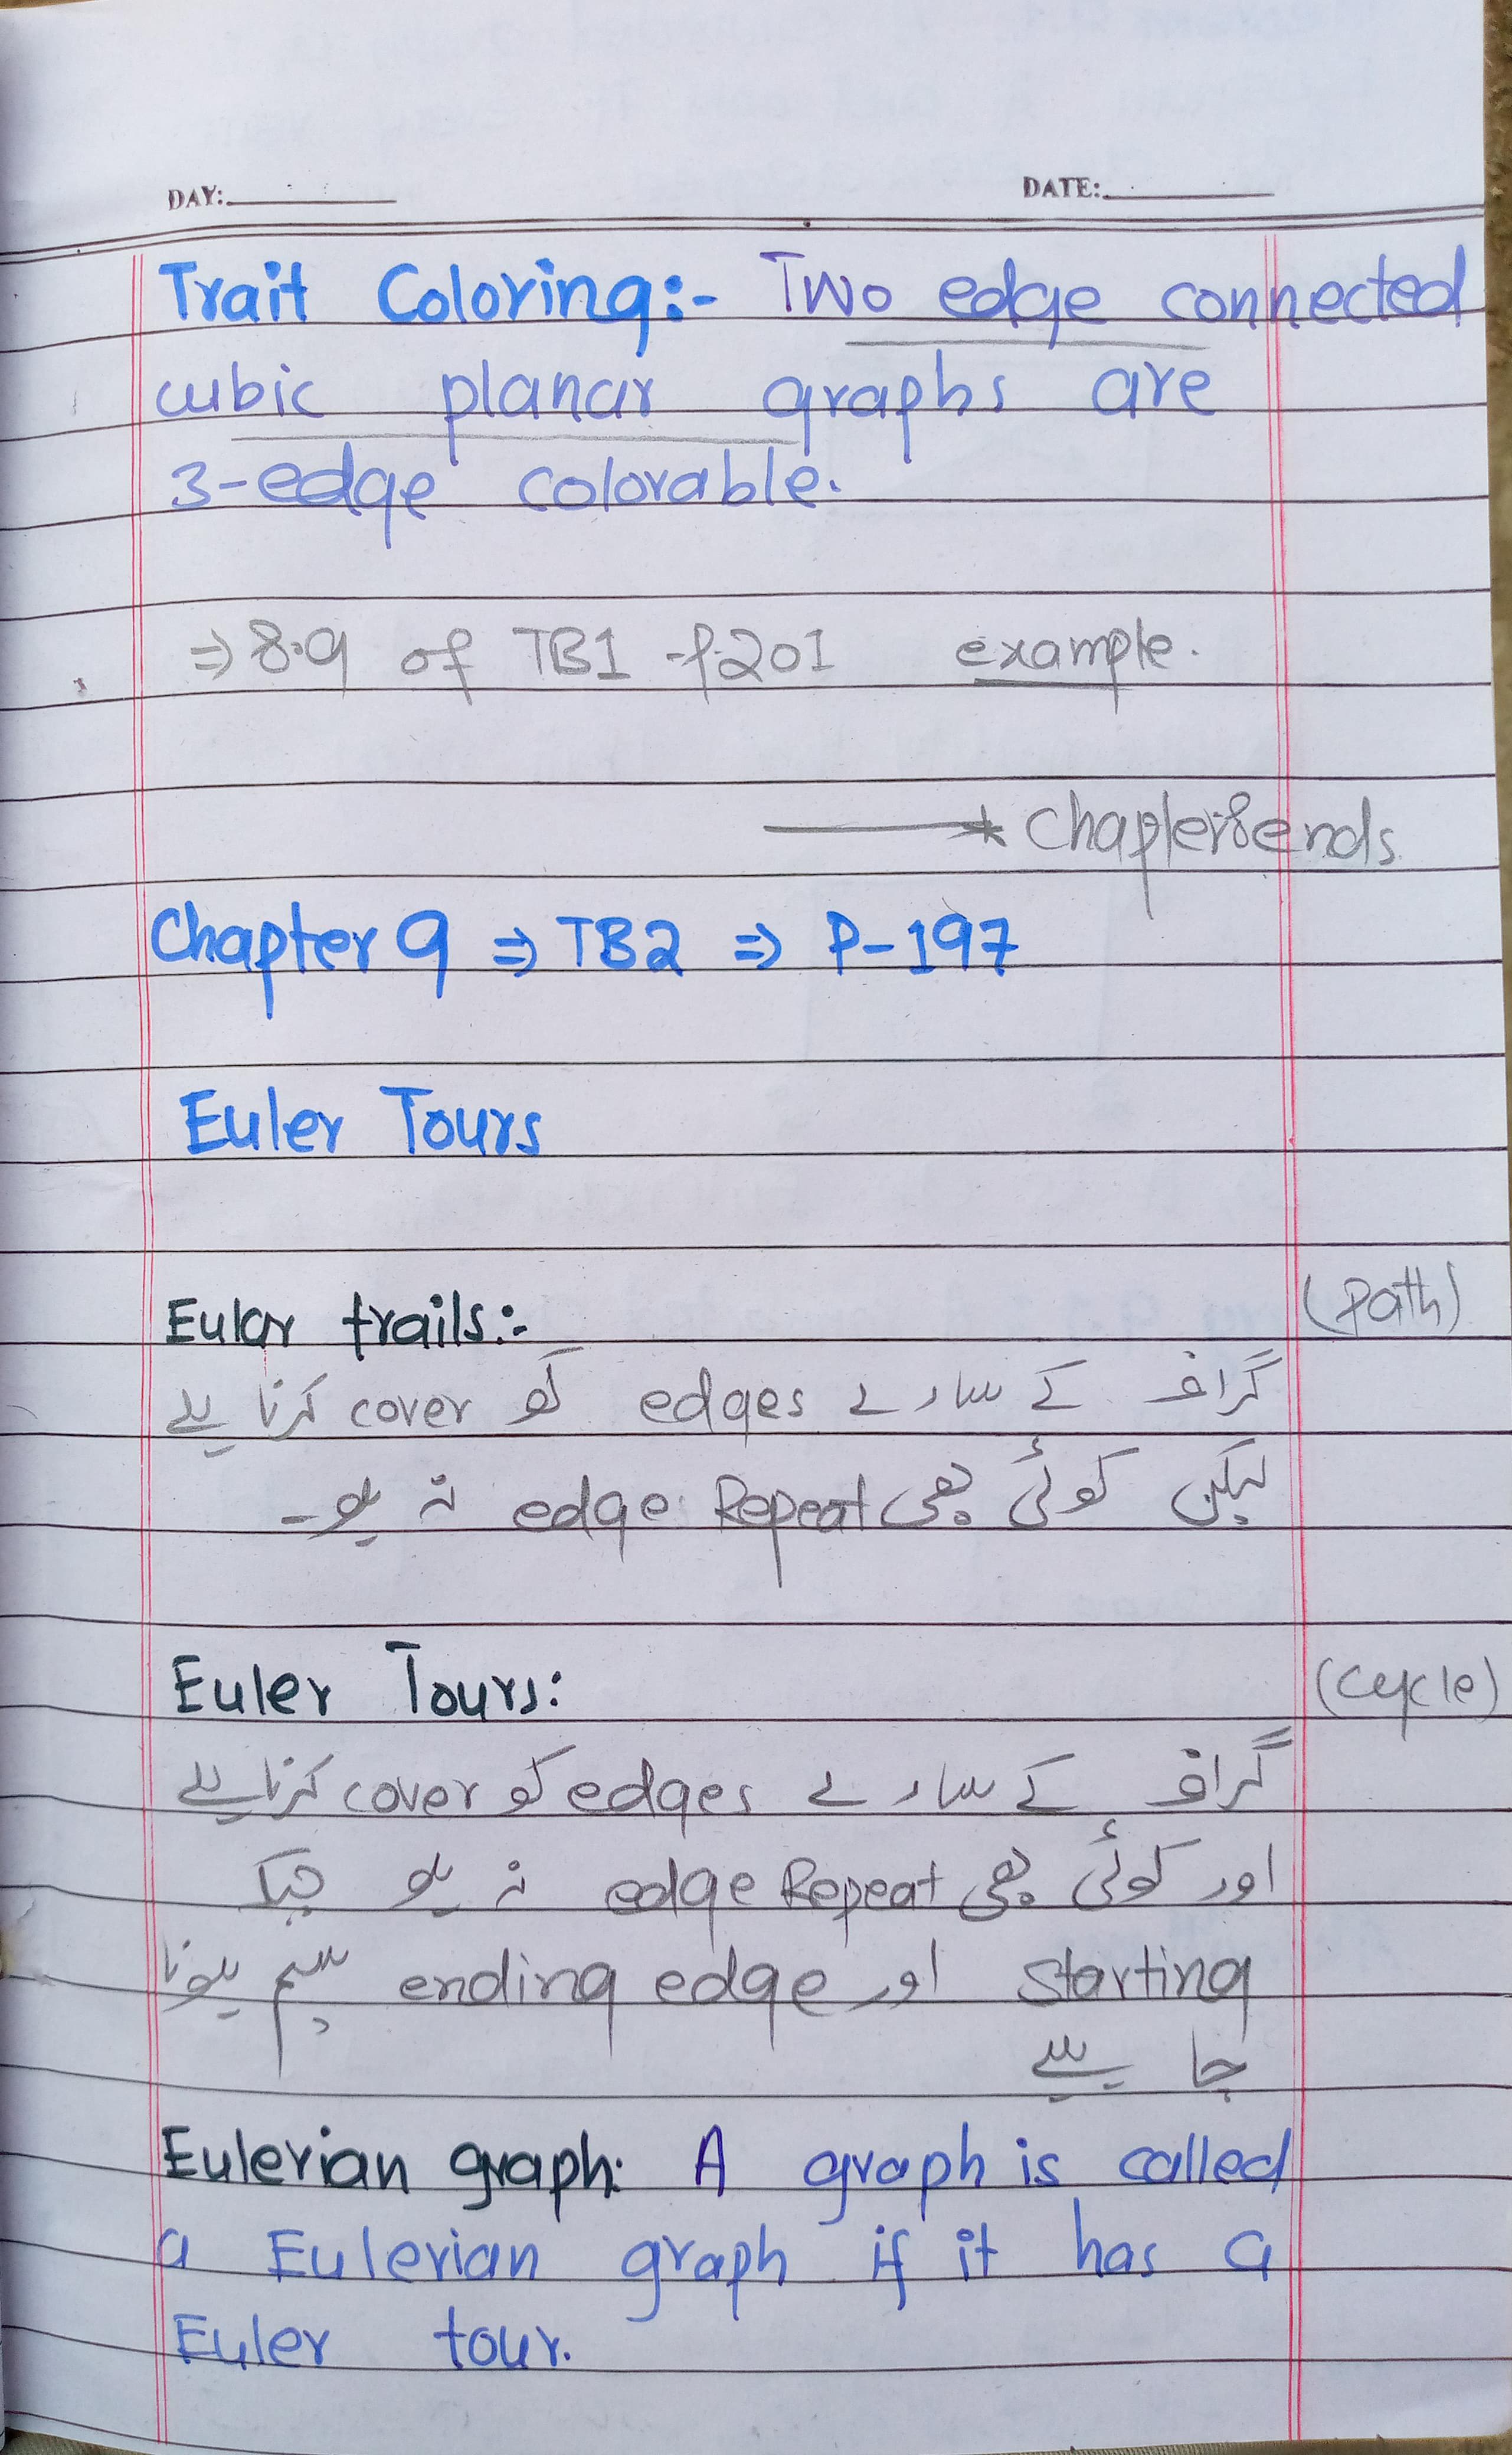 DAY: DATE:
Trait Coloring:- Two edge connected
cubic planar graphs are
3-edge colorable.
⇒ 8.9 of TB1 -P.201 example.
Chapter 8 ends
Chapter 9 ⇒ TB2 ⇒ P-197
Euler Tours
Eular trails:- (Path)
گراف کے سارے edges کو cover کرنا ہے
لیکن کوئی بھی edge Repeat نہ ہو۔
Euler Tours: (cycle)
گراف کے سارے edges کو cover کرنا ہے
اور کوئی بھی edge Repeat نہ ہو جبکہ
starting اور ending edge سیم ہونا
چاہیے
Eulerian graph: A graph is called
a Eulerian graph if it has a
Euler tour.